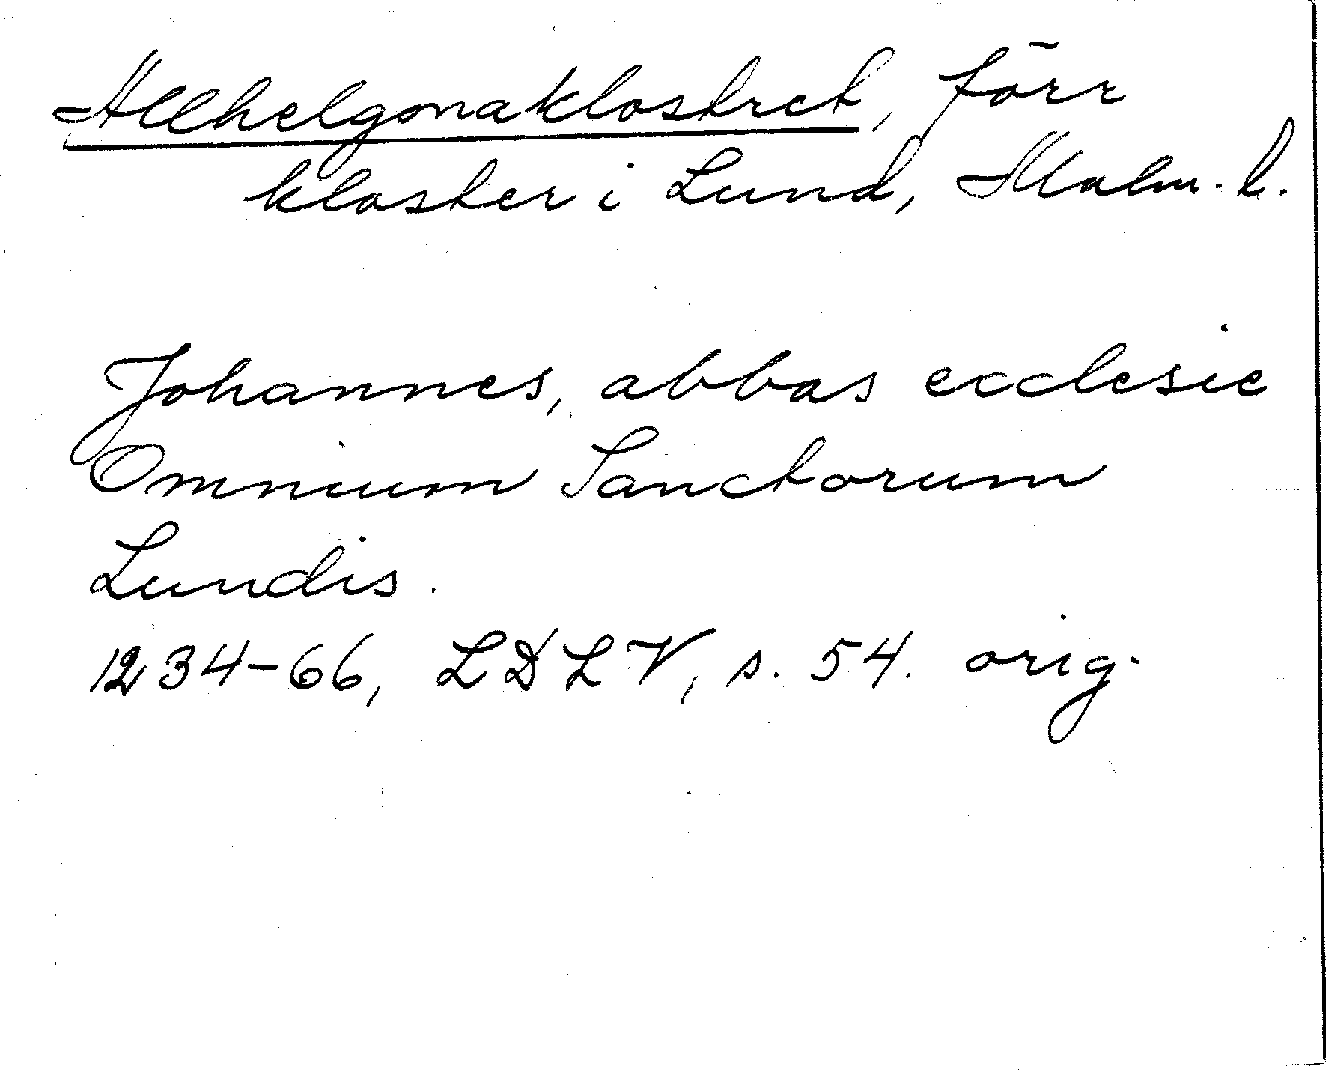 Allhelgonaklostret, förr
kloster i Lund, Malm. l.
Johannes, abbas ecclesie
Omnium Sanctorum
Lundis.
1234-66, LDLV, s. 54. orig.